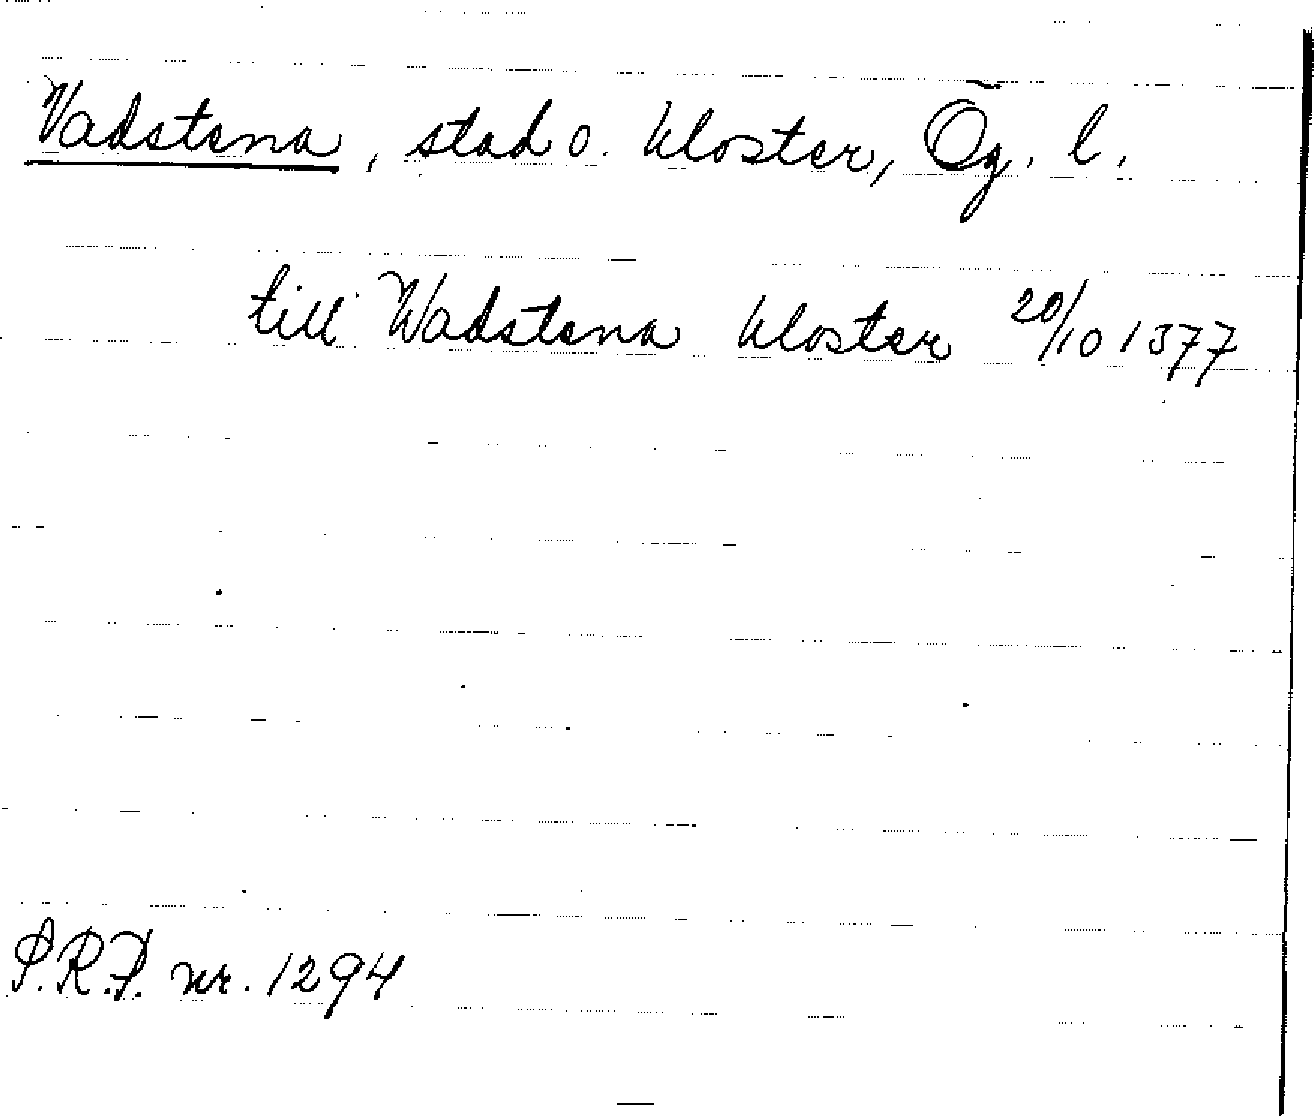 Vadstena, stad o. kloster, Ög. l.
till Wadstena kloster 20/10 1377
S.R.P. nr. 1294